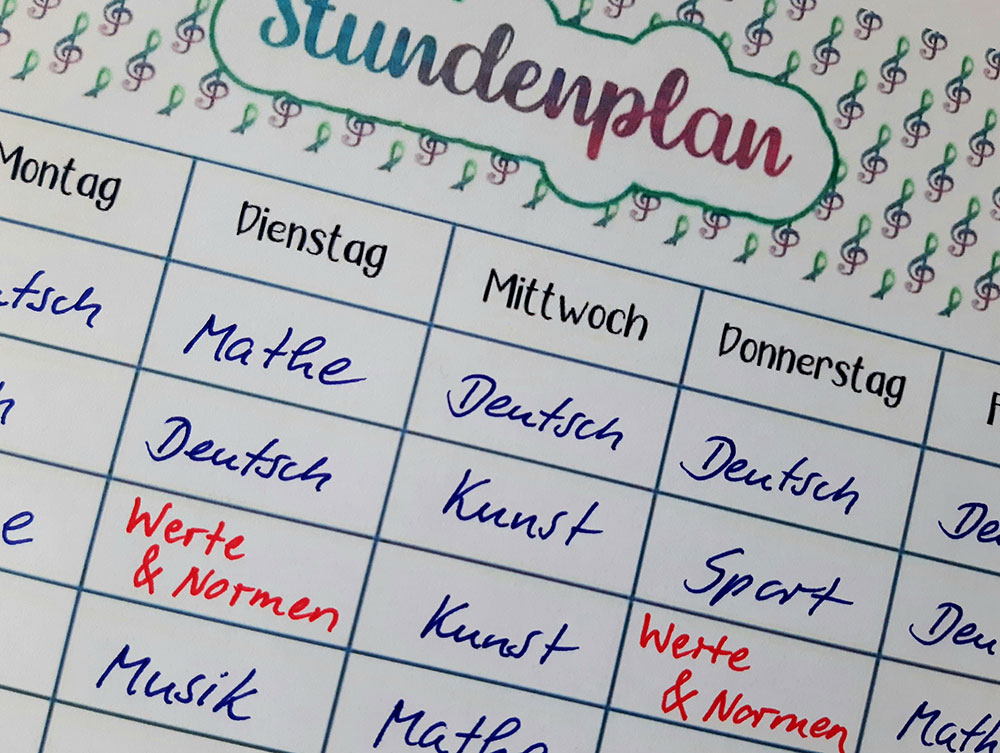 Stundenplan
Montag Dienstag Mittwoch Donnerstag
Mathe Deutsch Deutsch
Deutsch Kunst Sport
Werte
& Normen
Kunst
Werte
& Normen
Musik Mathe